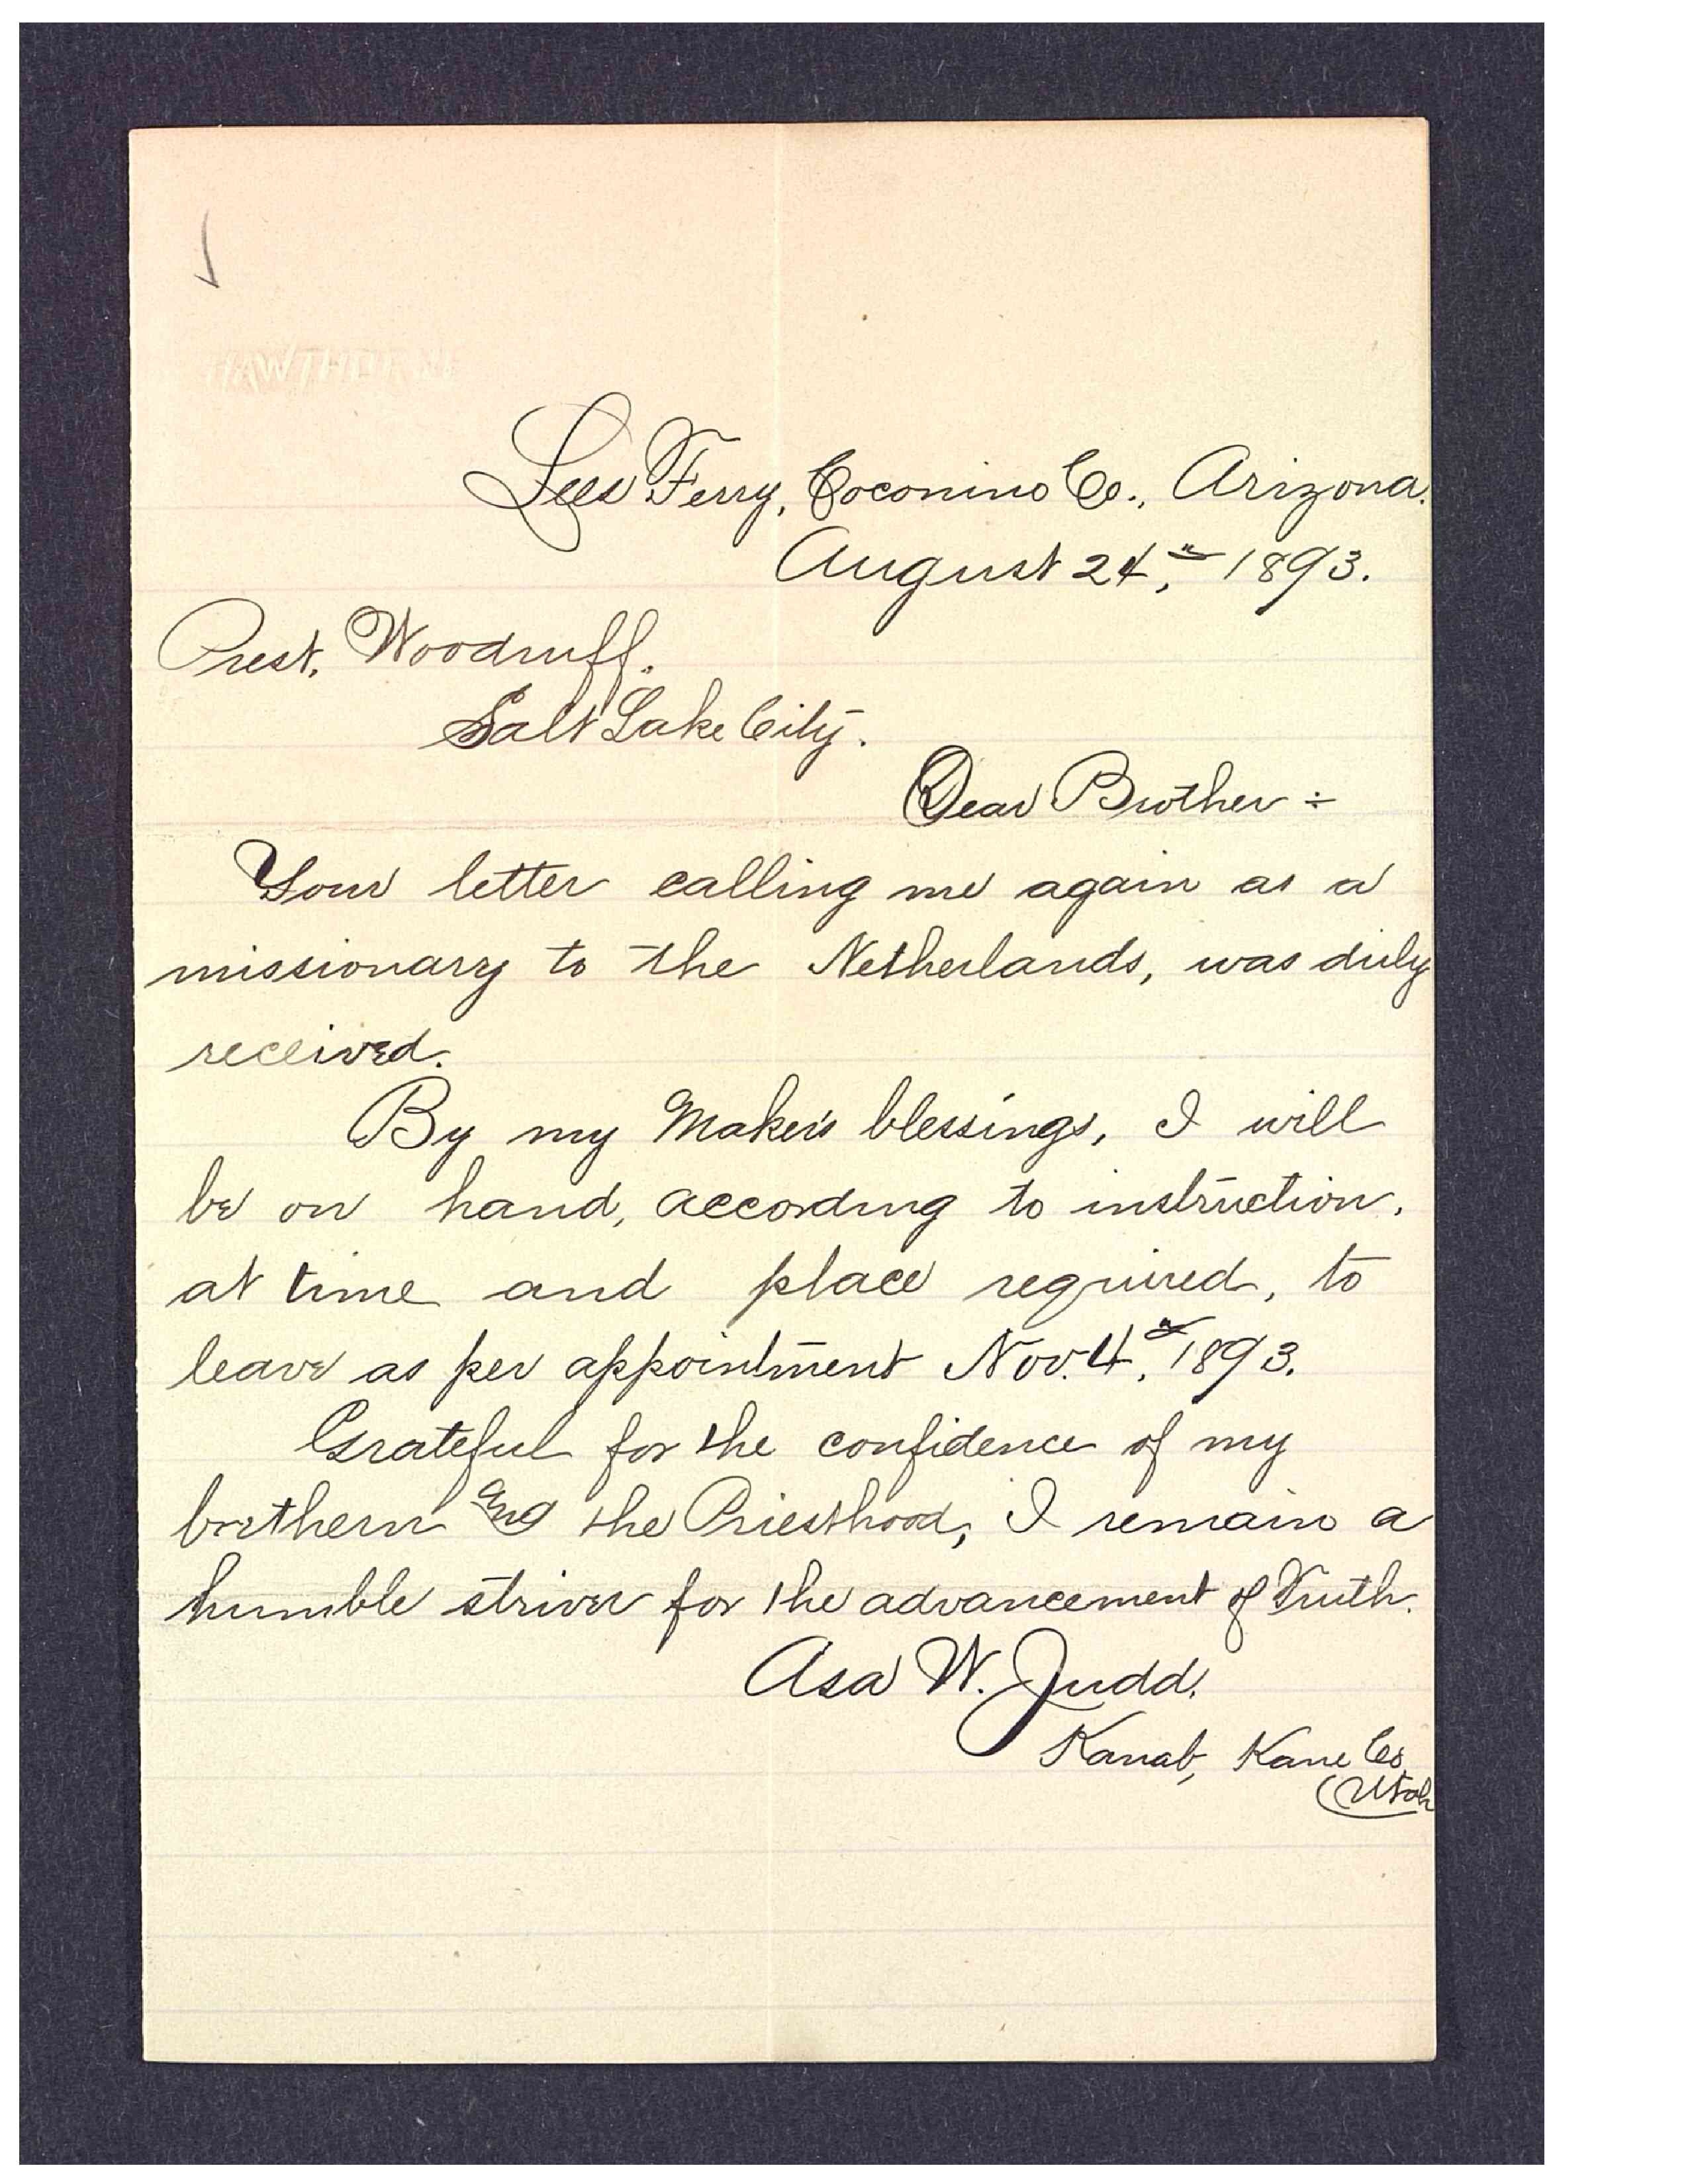 HAWTHORNE
Lees Ferry, Coconino Co., Arizona.
August 24th, 1893.
Prest. Woodruff.
Salt Lake City.
Dear Brother :
Your letter calling me again as a
missionary to the Netherlands, was duly
received.
By my Maker's blessings, I will
be on hand, according to instruction,
at time and place required, to
leave as per appointment Nov. 4th, 1893.
Grateful for the confidence of my
brethern the Priesthood, I remain a
humble striver for the advancement of Truth.
Asa W. Judd.
Kanab, Kane Co
Utah